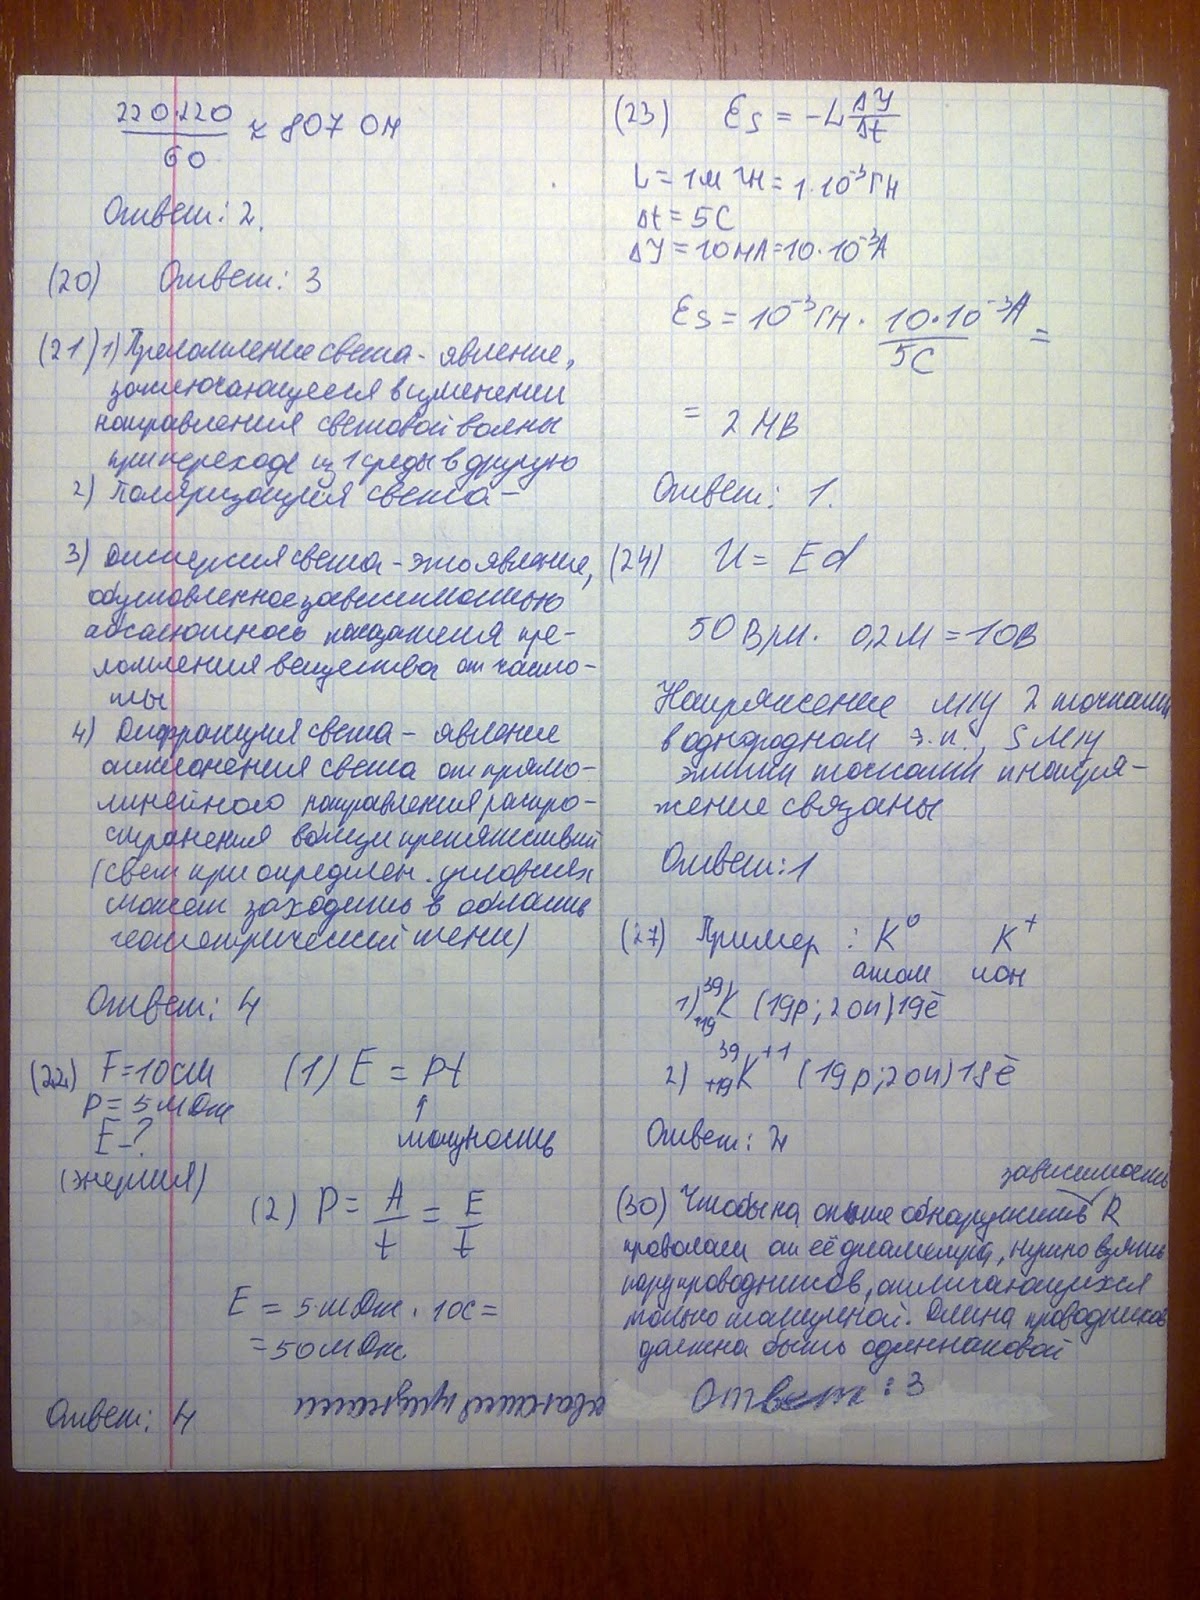 220·220
60
≈ 807 Ом
Ответ: 2.
(20) Ответ: 3
(21) 1) Преломление света - явление,
заключающееся в изменении
направления световой волны
при переходе из 1 среды в другую
2) Поляризация света -
3) Дисперсия света - это явление,
обусловленное зависимостью
абсолютного показателя пре-
ломления вещества от часто-
ты
4) Дифракция света - явление
отклонения света от прямо-
линейного направления распро-
странения вблизи препятствий
(свет при определен. условиях
может заходить в область
геометрической тени)
Ответ: 4
(22) F=10см (1) E = Pt
P = 5 мДж
↑
E - ? мощность
(энергия)
(2) P = A/t = E/t
E = 5 мДж · 10с =
= 50 мДж
Ответ: 4
(23) Es = -L ΔУ/Δt
L = 1м Гн = 1·10⁻³ Гн
Δt = 5С
ΔУ = 10мА = 10·10⁻³А
Es = 10⁻³Гн · 10·10⁻³А/5С =
= 2 МВ
Ответ: 1.
(24) U = Ed
50 В/м · 0,2м = 10В
Напряжение м/у 2 точками
в однородном э.п., S м/у
этими точками и напря-
жение связаны
Ответ: 1
(27) Пример : K⁰ K⁺
атом ион
1) ³⁹₊₁₉K (19p; 20n) 19ē
2) ³⁹₊₁₉K⁺¹ (19p; 20n) 18ē
Ответ: 2
зависимость
(30) Чтобы на опыте обнаружить R
проволоки от её диаметра, нужно взять
пару проводников, отличающихся
только толщиной. Длина проводников
должна быть одинаковой
Ответ: 3